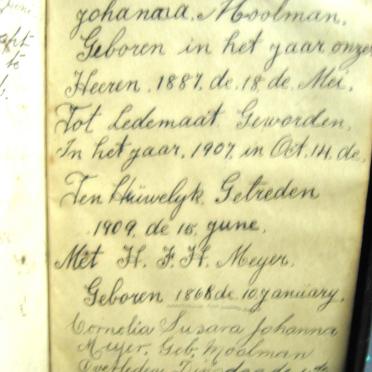 Johanna. Moolman.
Geboren in het jaar onzes
Heeren. 1887. de. 18. de. Mei.
Tot Ledemaat Geworden.
In het jaar. 1907. in Oct. 14. de.
Ten Huwelyk. Getreden
1909. de 15. june.
Met H. F. H. Meyer.
Geboren 1868 de. 10 january.
Cornelia Susara Johanna
Meijer. Geb. Moolman
Overleden Dinsdag de